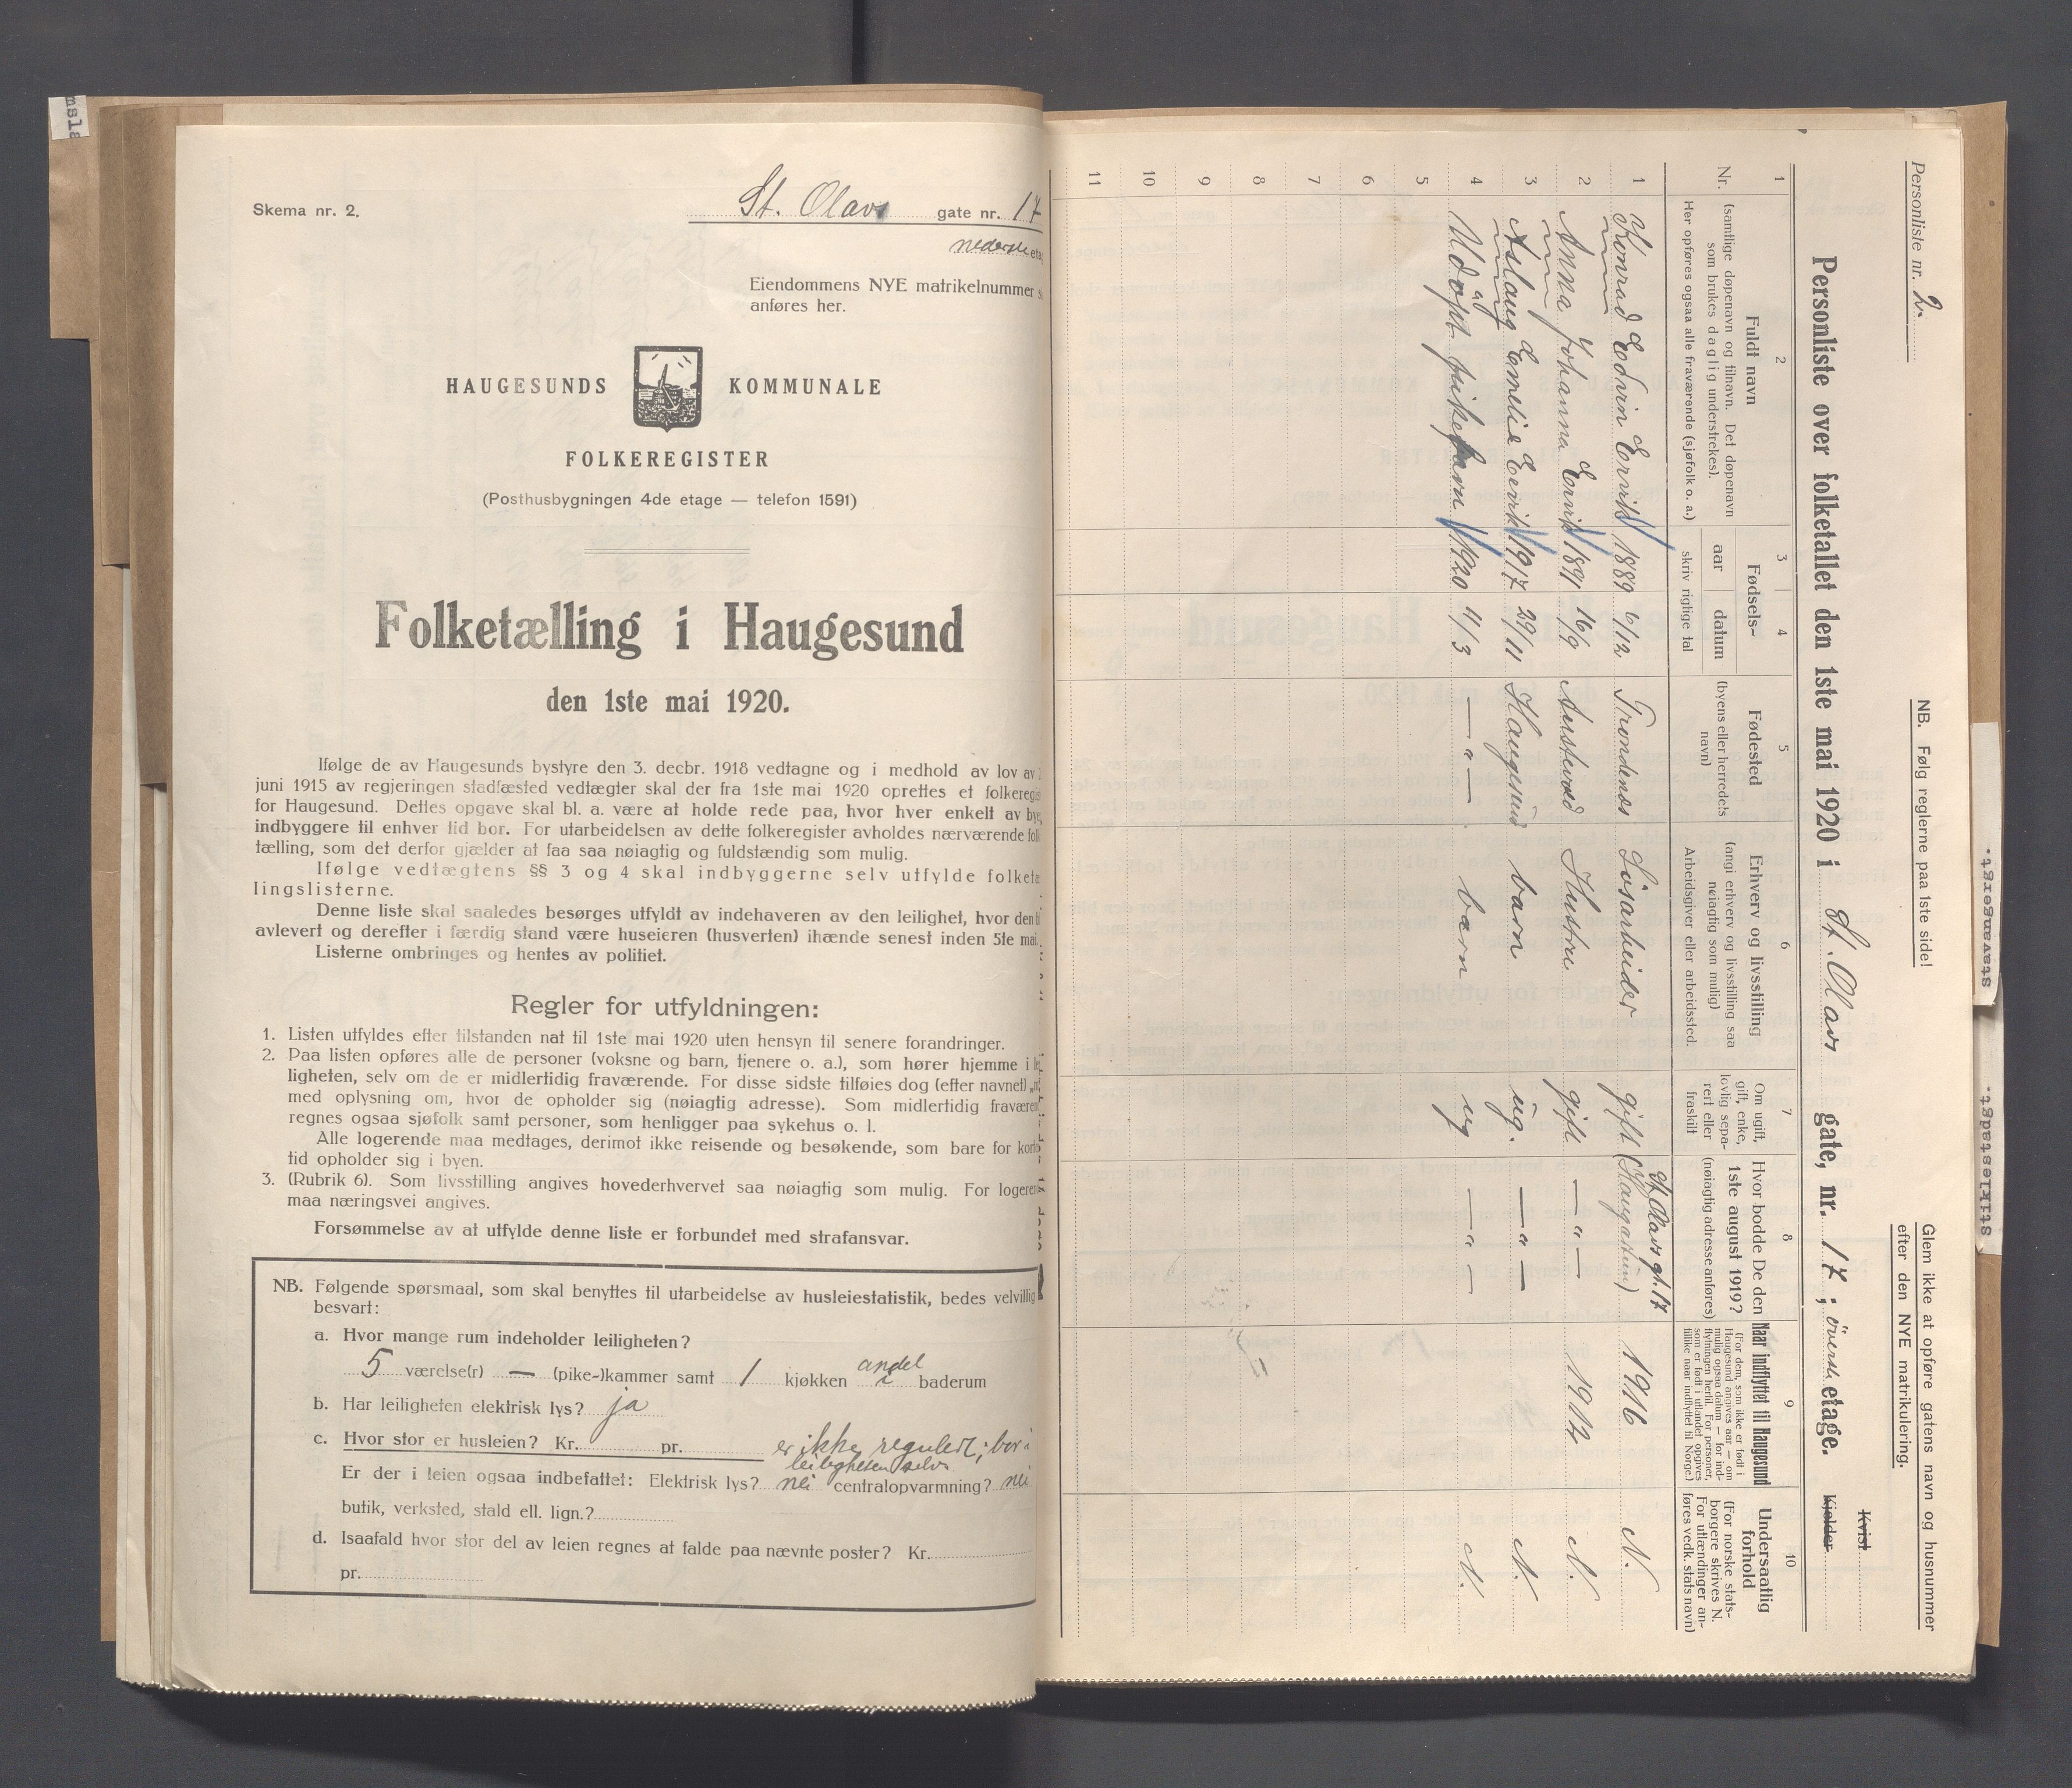 Skema nr. 2.
St. Olavs gate nr. 17
nederste eta
Eiendommens NYE matrikelnummer s
anføres her.
HAUGESUNDS KOMMUNALE
FOLKEREGISTER
(Posthusbygningen 4de etage — telefon 1591)
Folketælling i Haugesund
den 1ste mai 1920.
Ifølge de av Haugesunds bystyre den 3. decbr. 1918 vedtagne og i medhold av lov av
juni 1915 av regjeringen stadfæsted vedtægter skal der fra 1ste mai 1920 oprettes et folkeregis
for Haugesund. Dettes opgave skal bl. a. være at holde rede paa, hvor hver enkelt av bye
indbyggere til enhver tid bor. For utarbeidelsen av dette folkeregister avholdes nærværende fol
tælling, som det derfor gjælder at faa saa nøiagtig og fuldstændig som mulig.
Ifølge vedtægtens §§ 3 og 4 skal indbyggerne selv utfylde folketæ
lingslisterne.
Denne liste skal saaledes besørges utfyldt av indehaveren av den leilighet, hvor den b
avlevert og derefter i færdig stand være huseieren (husverten) ihænde senest inden 5te mai.
Listerne ombringes og hentes av politiet.
Regler for utfyldningen:
1. Listen utfyldes efter tilstanden nat til 1ste mai 1920 uten hensyn til senere forandringer.
2. Paa listen opføres alle de personer (voksne og barn, tjenere o. a.), som hører hjemme i le
ligheten, selv om de er midlertidig fraværende. For disse sidste tilføies dog (efter navnet) „m
med oplysning om, hvor de opholder sig (nøiagtig adresse). Som midlertidig fraværen
regnes ogsaa sjøfolk samt personer, som henligger paa sykehus o. l.
Alle logerende maa medtages, derimot ikke reisende og besøkende, som bare for korte
tid opholder sig i byen.
3. (Rubrik 6). Som livsstilling angives hovederhvervet saa nøiagtig som mulig. For logeren
maa næringsvei angives.
Forsømmelse av at utfylde denne liste er forbundet med strafansvar.
NB. Følgende spørsmaal, som skal benyttes til utarbeidelse av husleiestatistik, bedes velvillig
besvart:
a. Hvor mange rum indeholder leiligheten?
5 værelse(r) — (pike-)kammer samt 1 kjøkken andel i baderum
b. Har leiligheten elektrisk lys? ja
c. Hvor stor er husleien? Kr. pr. er ikke regulert; bor i
leiligheten selv.
Er der i leien ogsaa indbefattet: Elektrisk lys? nei centralopvarmning? nei
butik, verksted, stald ell. lign.?
d. Isaafald hvor stor del av leien regnes at falde paa nævnte poster? Kr.
pr.
Personliste nr. 2.
NB. Følg reglerne paa 1ste side!
Glem ikke at opføre gatens navn og husnummer
efter den NYE matrikulering.
Personliste over folketallet den 1ste mai 1920 i St. Olavs gate, nr. 17; överste etage.
Kvist
Kjelder
1 2 3 4 5 6 7 8 9 10
Nr.
Fuldt navn
(samtlige døpenavn og tilnavn. Det døpenavn
som brukes daglig understrekes).
Her opføres ogsaa alle fraværende (sjøfolk o. a.)
Fødsels-
aar datum
skriv riglige tal
Fødested
(byens eller herredets
navn)
Erhverv og livsstilling
(angi erhverv og livsstilling saa
nøiagtig som mulig)
Arbeidsgiver eller arbeidssted.
Om ugift,
gift, enke,
lovlig sepa-
rert eller
fraskilt
Hvor bodde De den
1ste august 1919?
(nøiagtig adresse anføres)
Naar indflyttet til Haugesund
(For dem, som ikke er født i
Haugesund angives aar — om
mulig ogsaa datum — for ind-
flytningen hertil. For personer,
som er født i utlandet opgives
tillike naar indflyttet til Norge.)
Undersaatlig
forhold
(For norske stats-
borgere skrives N.
For utlændinger an-
føres vedk. stats navn)
1 Konrad Edvin Ervik 1889 6/12 Trondenes Løsarbeider gift St. Olavs gt. 17 (Haugesund) 1916 N.
2 Anna Johanna Ervik 1891 16/9 Austevold Hustru gift —"— 1914 N.
3 Aslaug Emelie Ervik 1917 29/11 Haugesund barn ug. —"— N.
4 Udöpt pikebarn 1920 4/3 —"— barn ug —"— N.
5
6
7
8
9
10
11
stavangergt.
stiklestadgt.